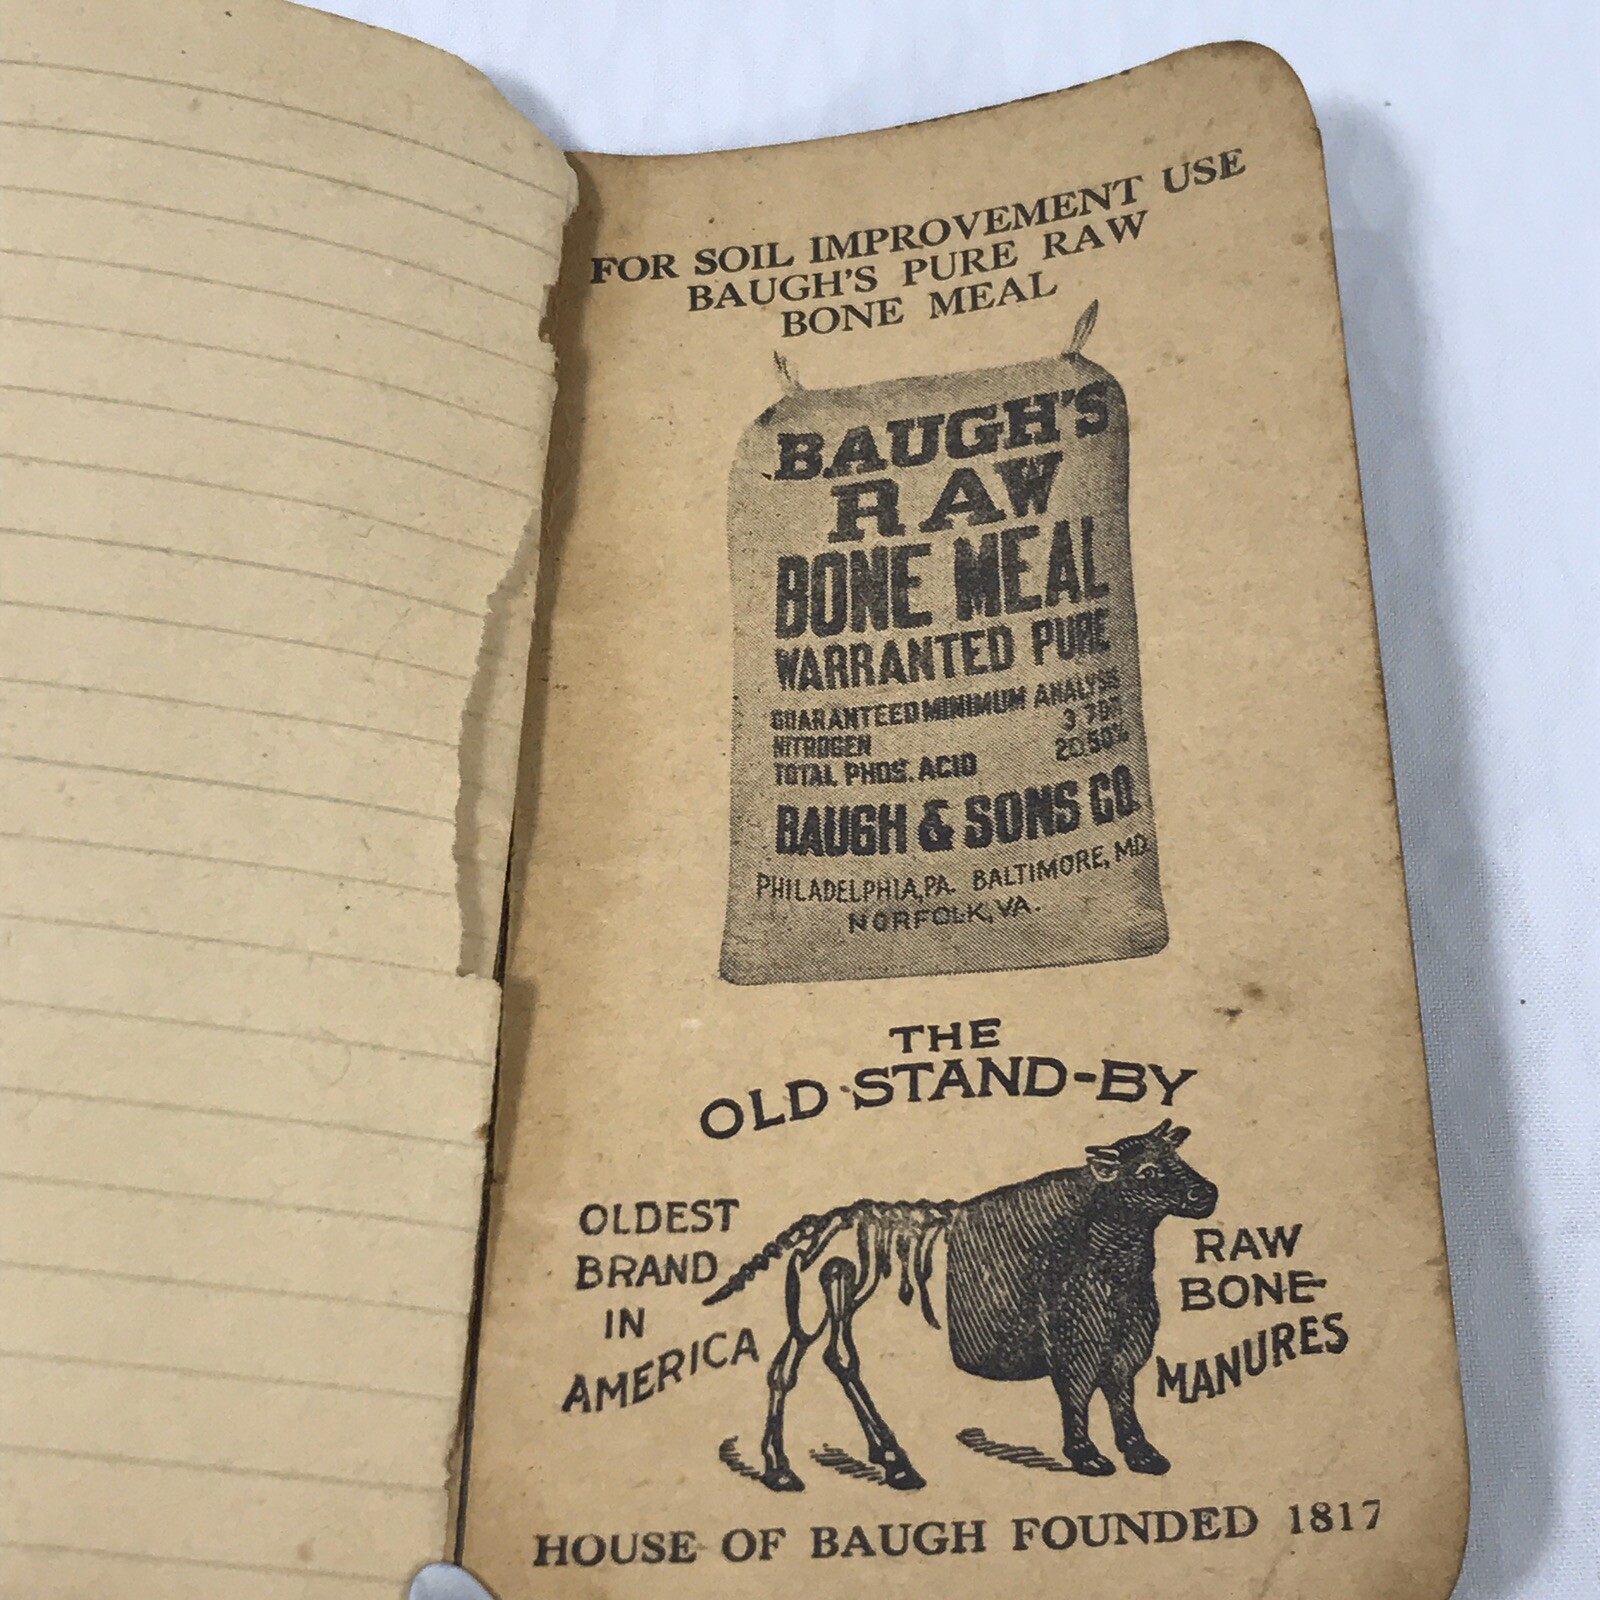 FOR SOIL IMPROVEMENT USE
BAUGH'S PURE RAW
BONE MEAL
BAUGH'S
RAW
BONE MEAL
WARRANTED PURE
GUARANTEED MINIMUM ANALYSIS
NITROGEN 3.70%
TOTAL PHOS. ACID 20.50%
BAUGH & SONS CO.
PHILADELPHIA, PA. BALTIMORE, MD.
NORFOLK, VA.
THE
OLD STAND-BY
OLDEST
BRAND
IN
AMERICA
RAW
BONE-
MANURES
HOUSE OF BAUGH FOUNDED 1817